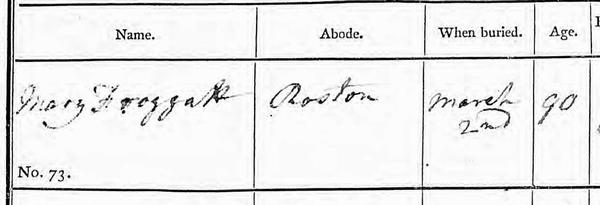 Name. Abode. When buried. Age.
Mary Froggatt Roston March 2nd 90
No. 73.